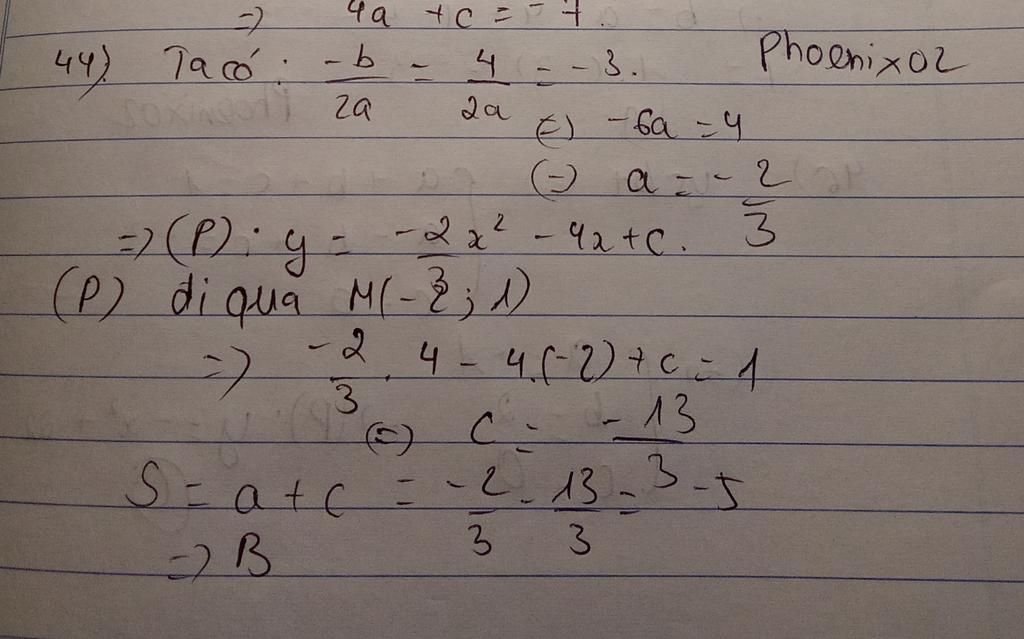 => 4a + c = -7.
44) Ta có: -b/2a = 4/2a = -3. Phoenix02
(=) -6a = 4
(=) a = -2/3
=> (P): y = -2/3 x² - 4x + c.
(P) đi qua M(-2; 1)
=> -2/3 . 4 - 4.(-2) + c = 1
(=) c = -13/3
S = a + c = -2/3 - 13/3 = -5
=> B